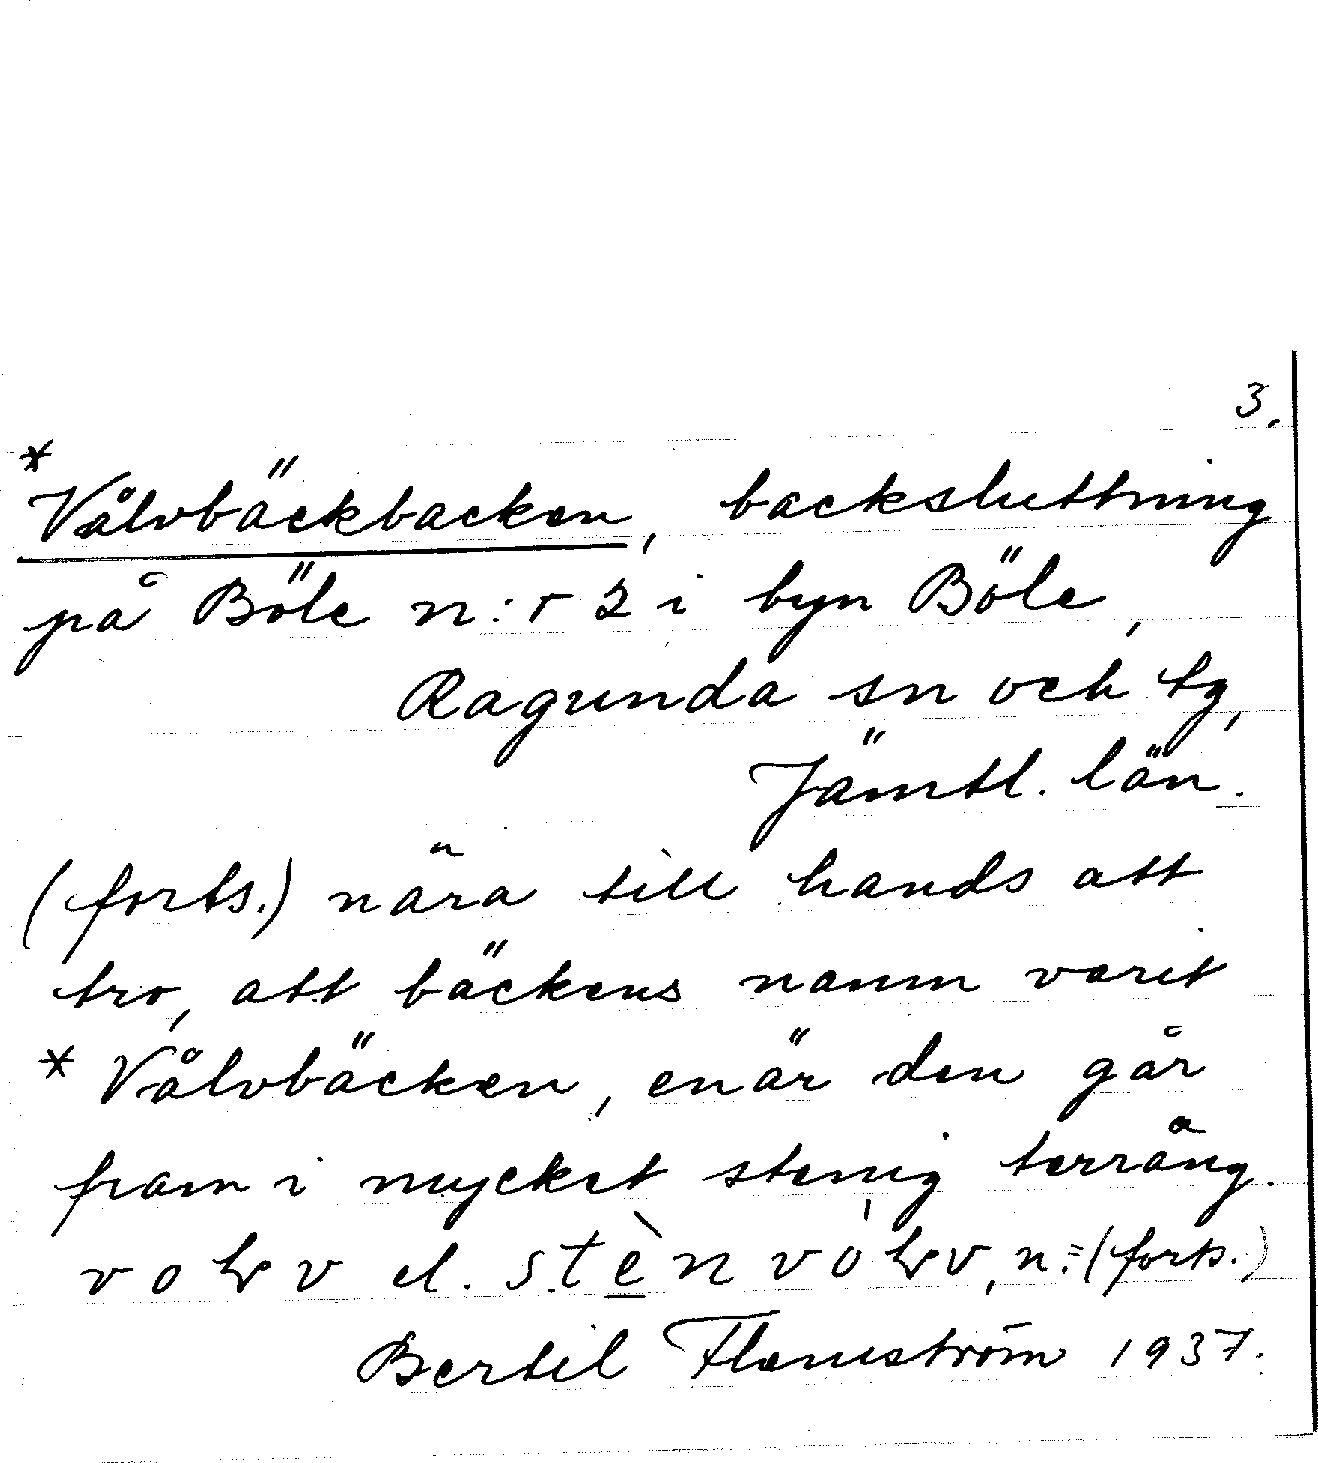 3.
*
Vålvbäckbacken, backsluttning
på Böle n:r 2 i byn Böle,
Ragunda sn och tg,
Jämtl. län.
(forts.) nära till hands att
tro, att bäckens namn varit
* Vålvbäcken, enär den går
fram i mycket stenig terräng.
el. n. = (forts.)
Bertil Flemström 1937.